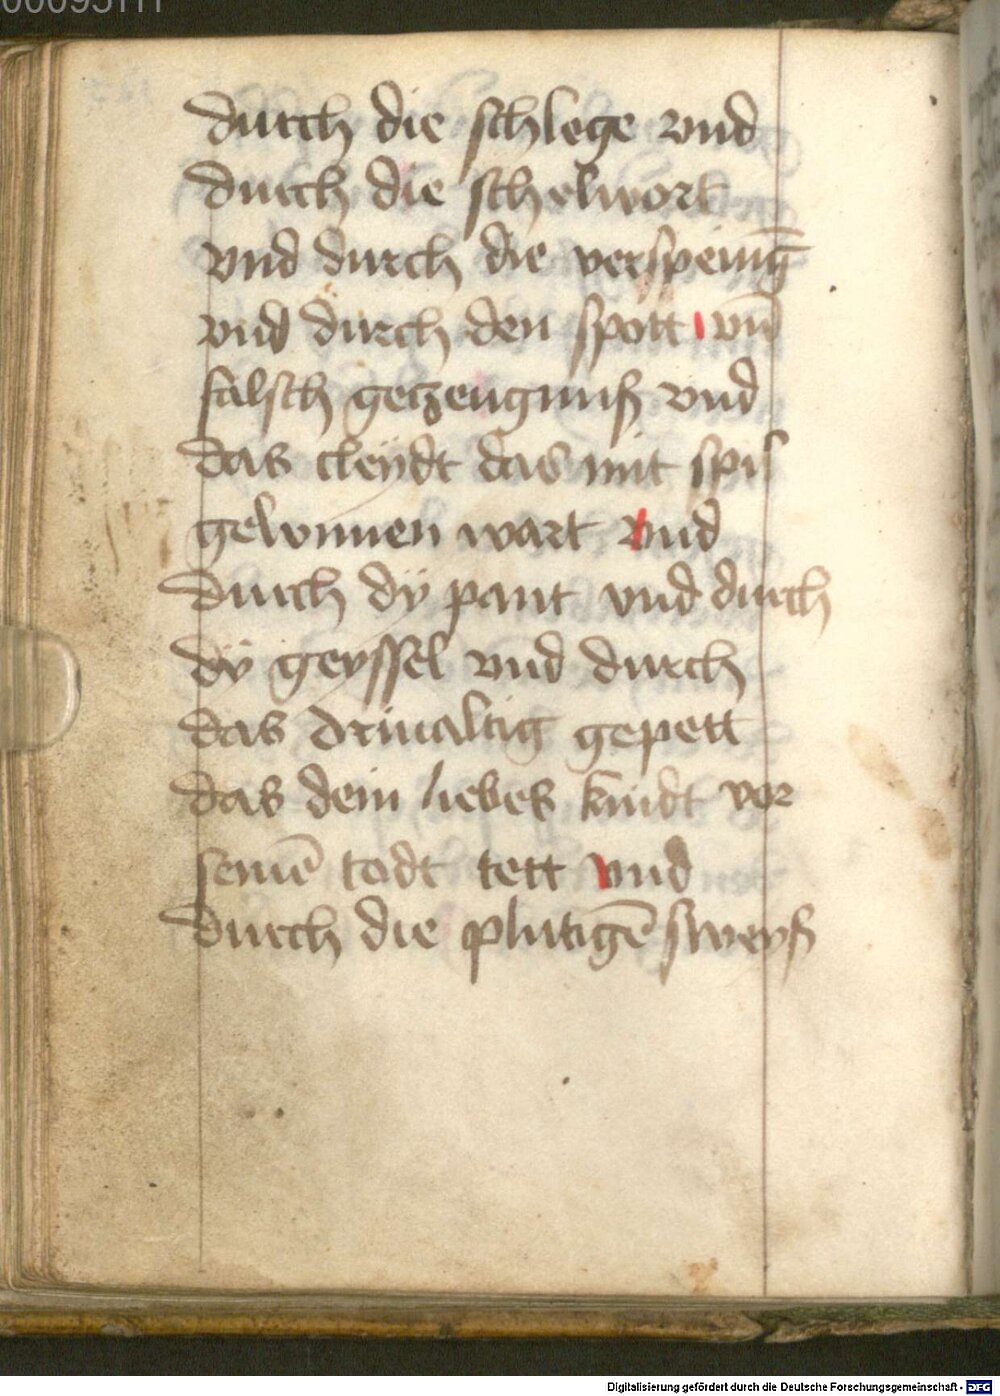 00095111
durch die schlege vnd
durch die schelwort
vnd durch die verspeiūg
vnd durch den spott vn̄
falsch getzeugnuß vnd
das cleydt das mit spil
gewunnen wart vnd
durch dÿ pant vnd durch
dÿ geyssel vnd durch
das driualtig gepett
das dein liebes kindt vor
seinē todt tett vnd
durch die plutigē sweyß
Digitalisierung gefördert durch die Deutsche Forschungsgemeinschaft - DFG